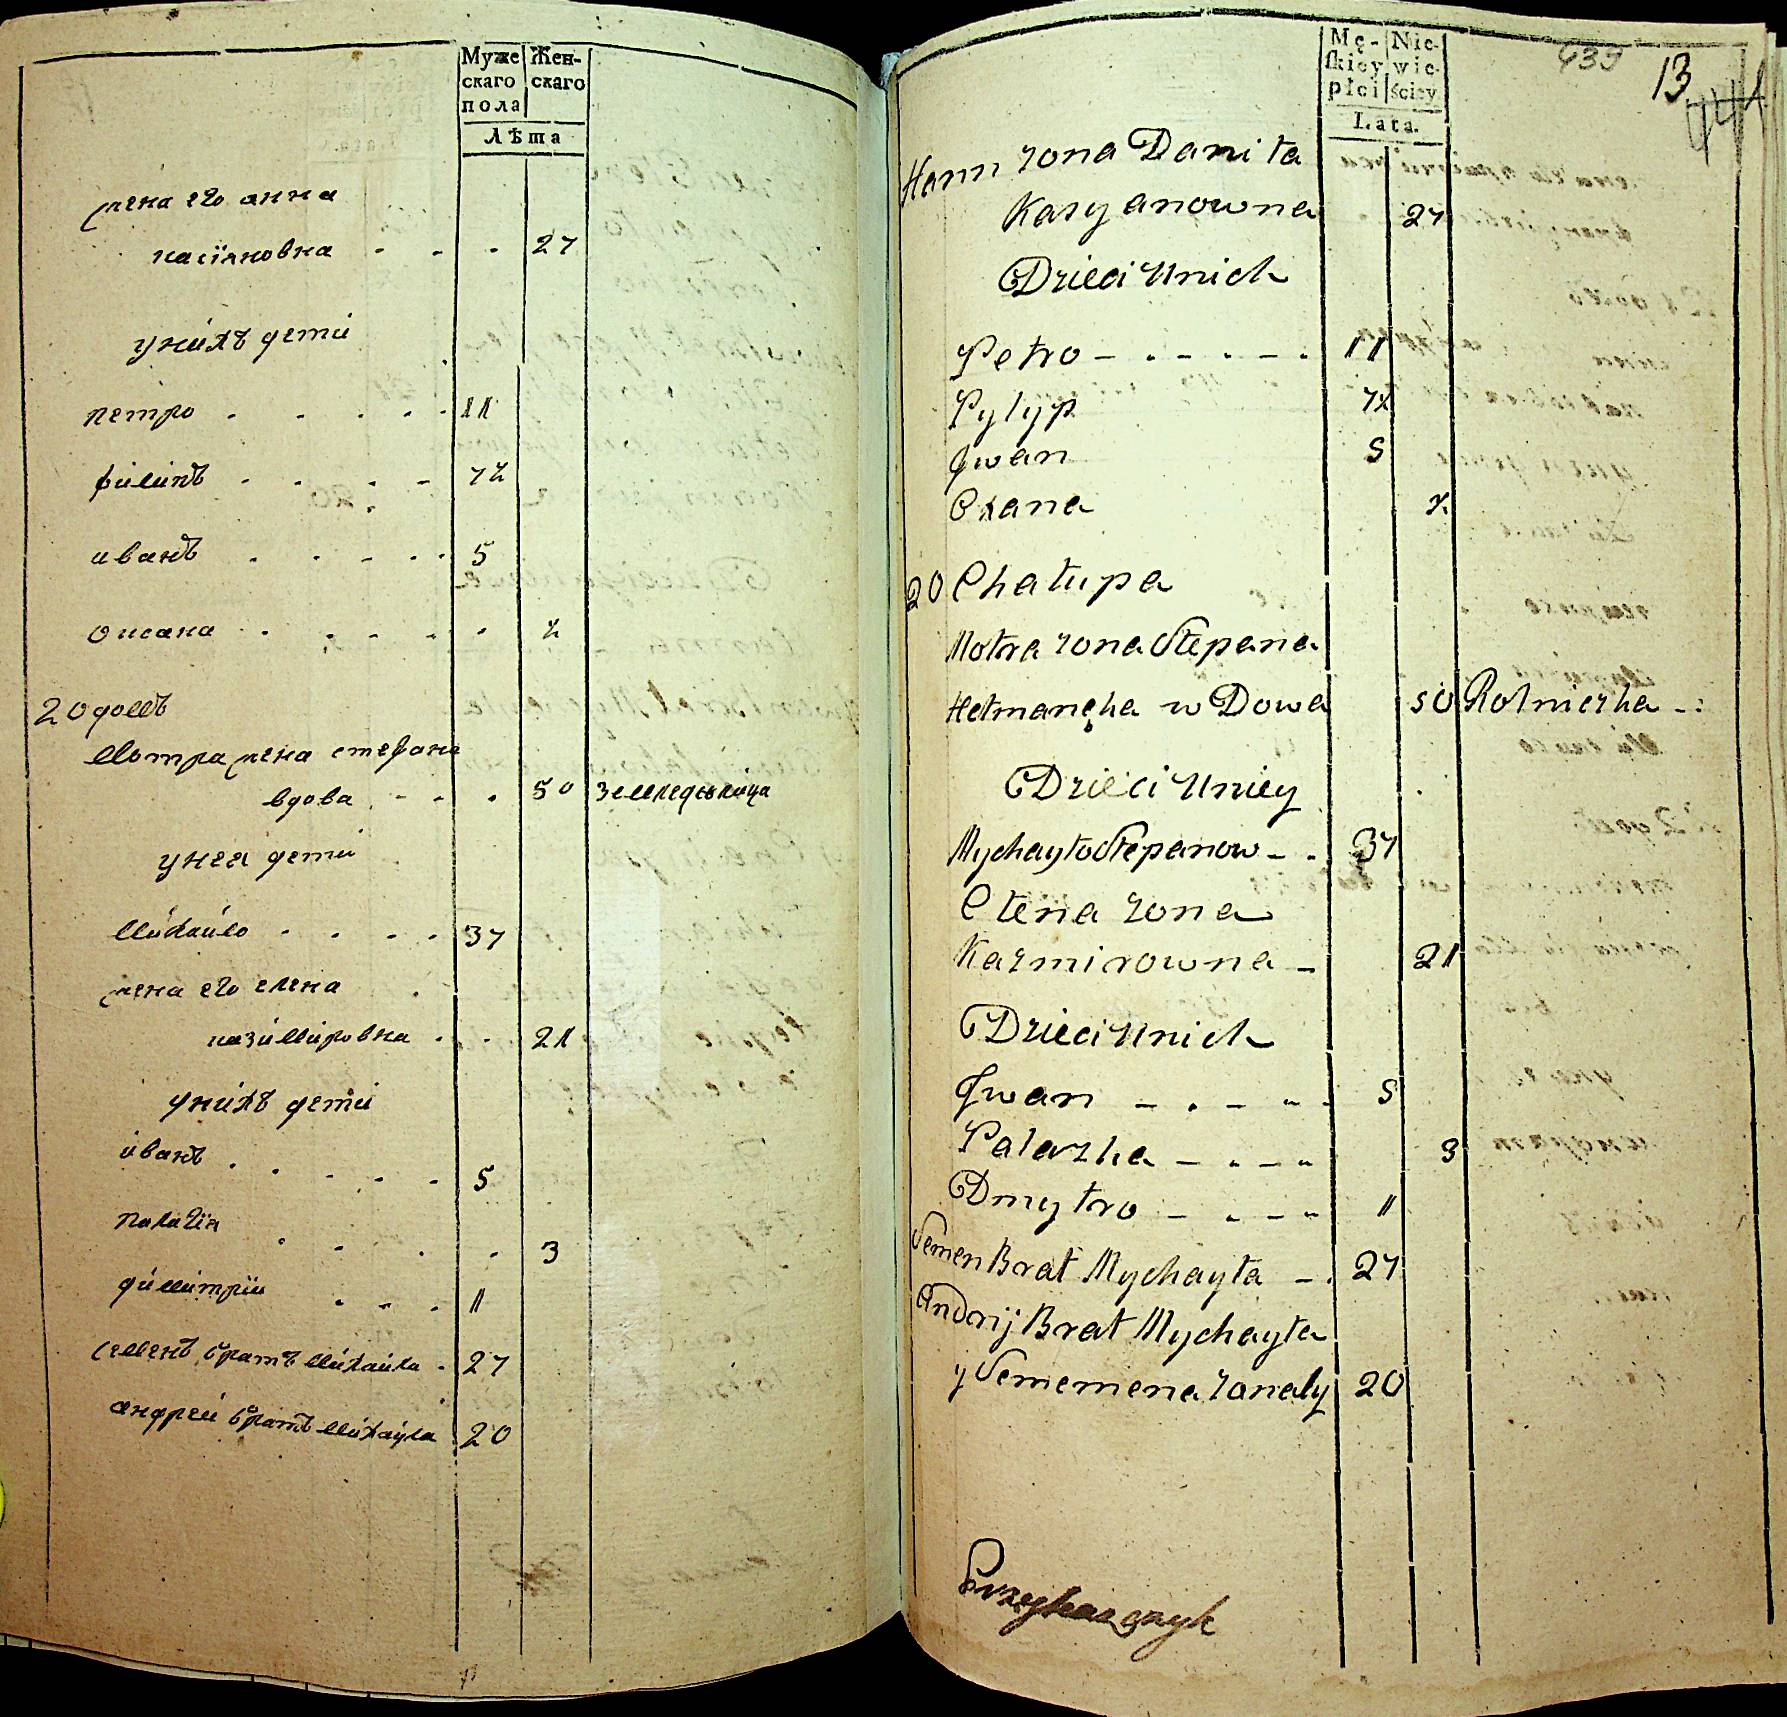 Муже
скаго
пола
Жен-
скаго
Лѣта
жена его анна
касіяновна - - - 27
унихъ дети
петро . . . . . 11
филипъ . . . - 7½
иванъ . . . . . 5
оксана . . - - . ½
20 домъ
Мотра жена стефана
вдова . - - . 50 земледѣлица
унея дети
михаило . . . . 37
жена его елена
казимировна . . 21
унихъ дети
иванъ . . . . . 5
палагія . - . . 3
димитрій . - . 1
семенъ братъ михаила . 27
андрей братъ михаила 20
Mę-
skiey
płci
Nie-
wie-
ściey
Lata.
439
13
Hann zona Daniła
Kasyanowna 27
Dzieci Unich
Petro - . - . - . 11
Pylyp 7½
Jwan 5
Oxana ½
20 Chałupa
Motra zona Stepana
Hetmanęka wDowa 50 Rolniczka - :
Dzieci Uniey
Mychayło Stepanow - . 37
Olena zona
Kazmirowna - 21
Dzieci Unich
Jwan - . - " - 5
Palazka - " - " 3
Dmytro - " - " 1
Semen Brat Mychayła - . 27
Andrij Brat Mychayła
y Sememena zonaly 20